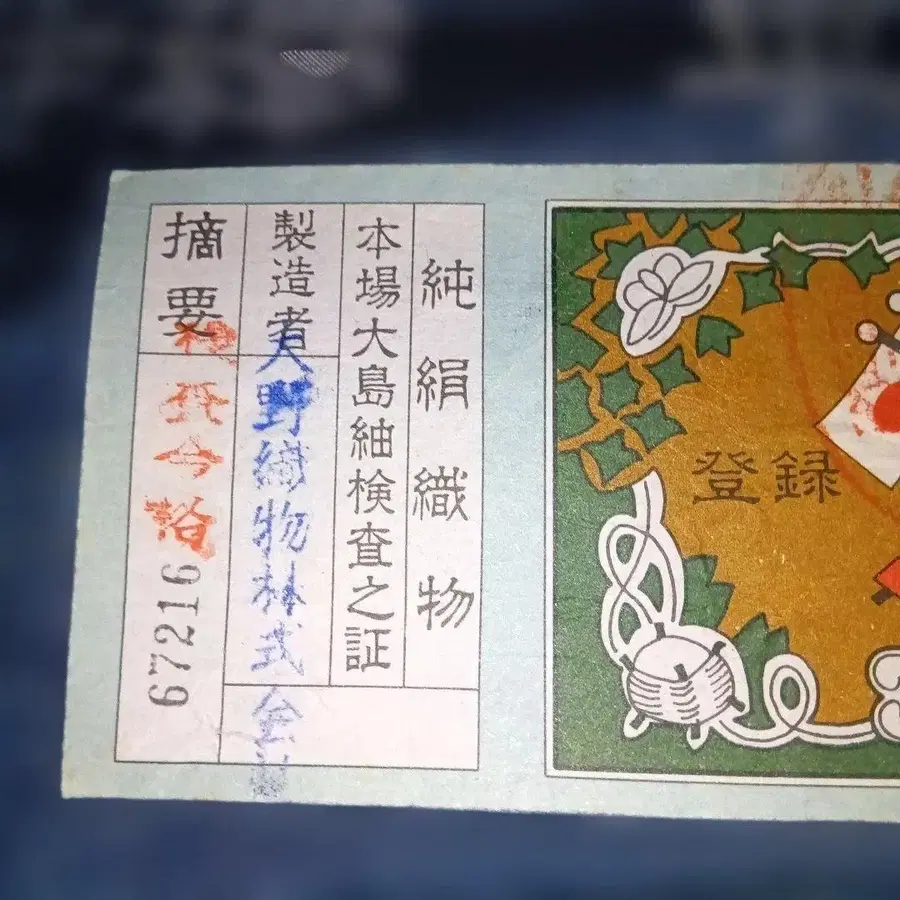 登録
純絹織物
本場大島紬検査之証
製造者
大野織物株式会
摘要
67216